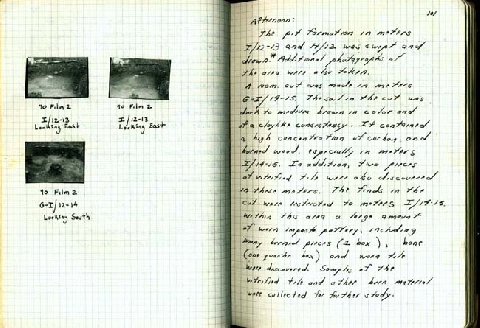 70 Film 2
I/12-13
Looking East
70 Film 2
I/12-13
Looking East
70 Film 2
G-I/12-14
Looking South
Afternoon:
The pit formation in meters
I/12-13 and H/12 was swept and
drawn. Additional photographs of
the area were also taken.
A new cut was made in meters
G-I/14-15. The soil in the cut was
dark to medium brown in color and
of a claylike consistency. It contained
a high concentration of carbon and
burned wood, especially in meters
I/14-15. In addition, two pieces
of vitrified tile were also discovered
in these meters. The finds in the
cut were restricted to meters I/14-15.
Within this area a large amount
of worn impasto pottery, including
many burned pieces (1 box), bone
(one box) and worn tile
were discovered. Samples of the
vitrified tile and other burned material
were collected for further study.